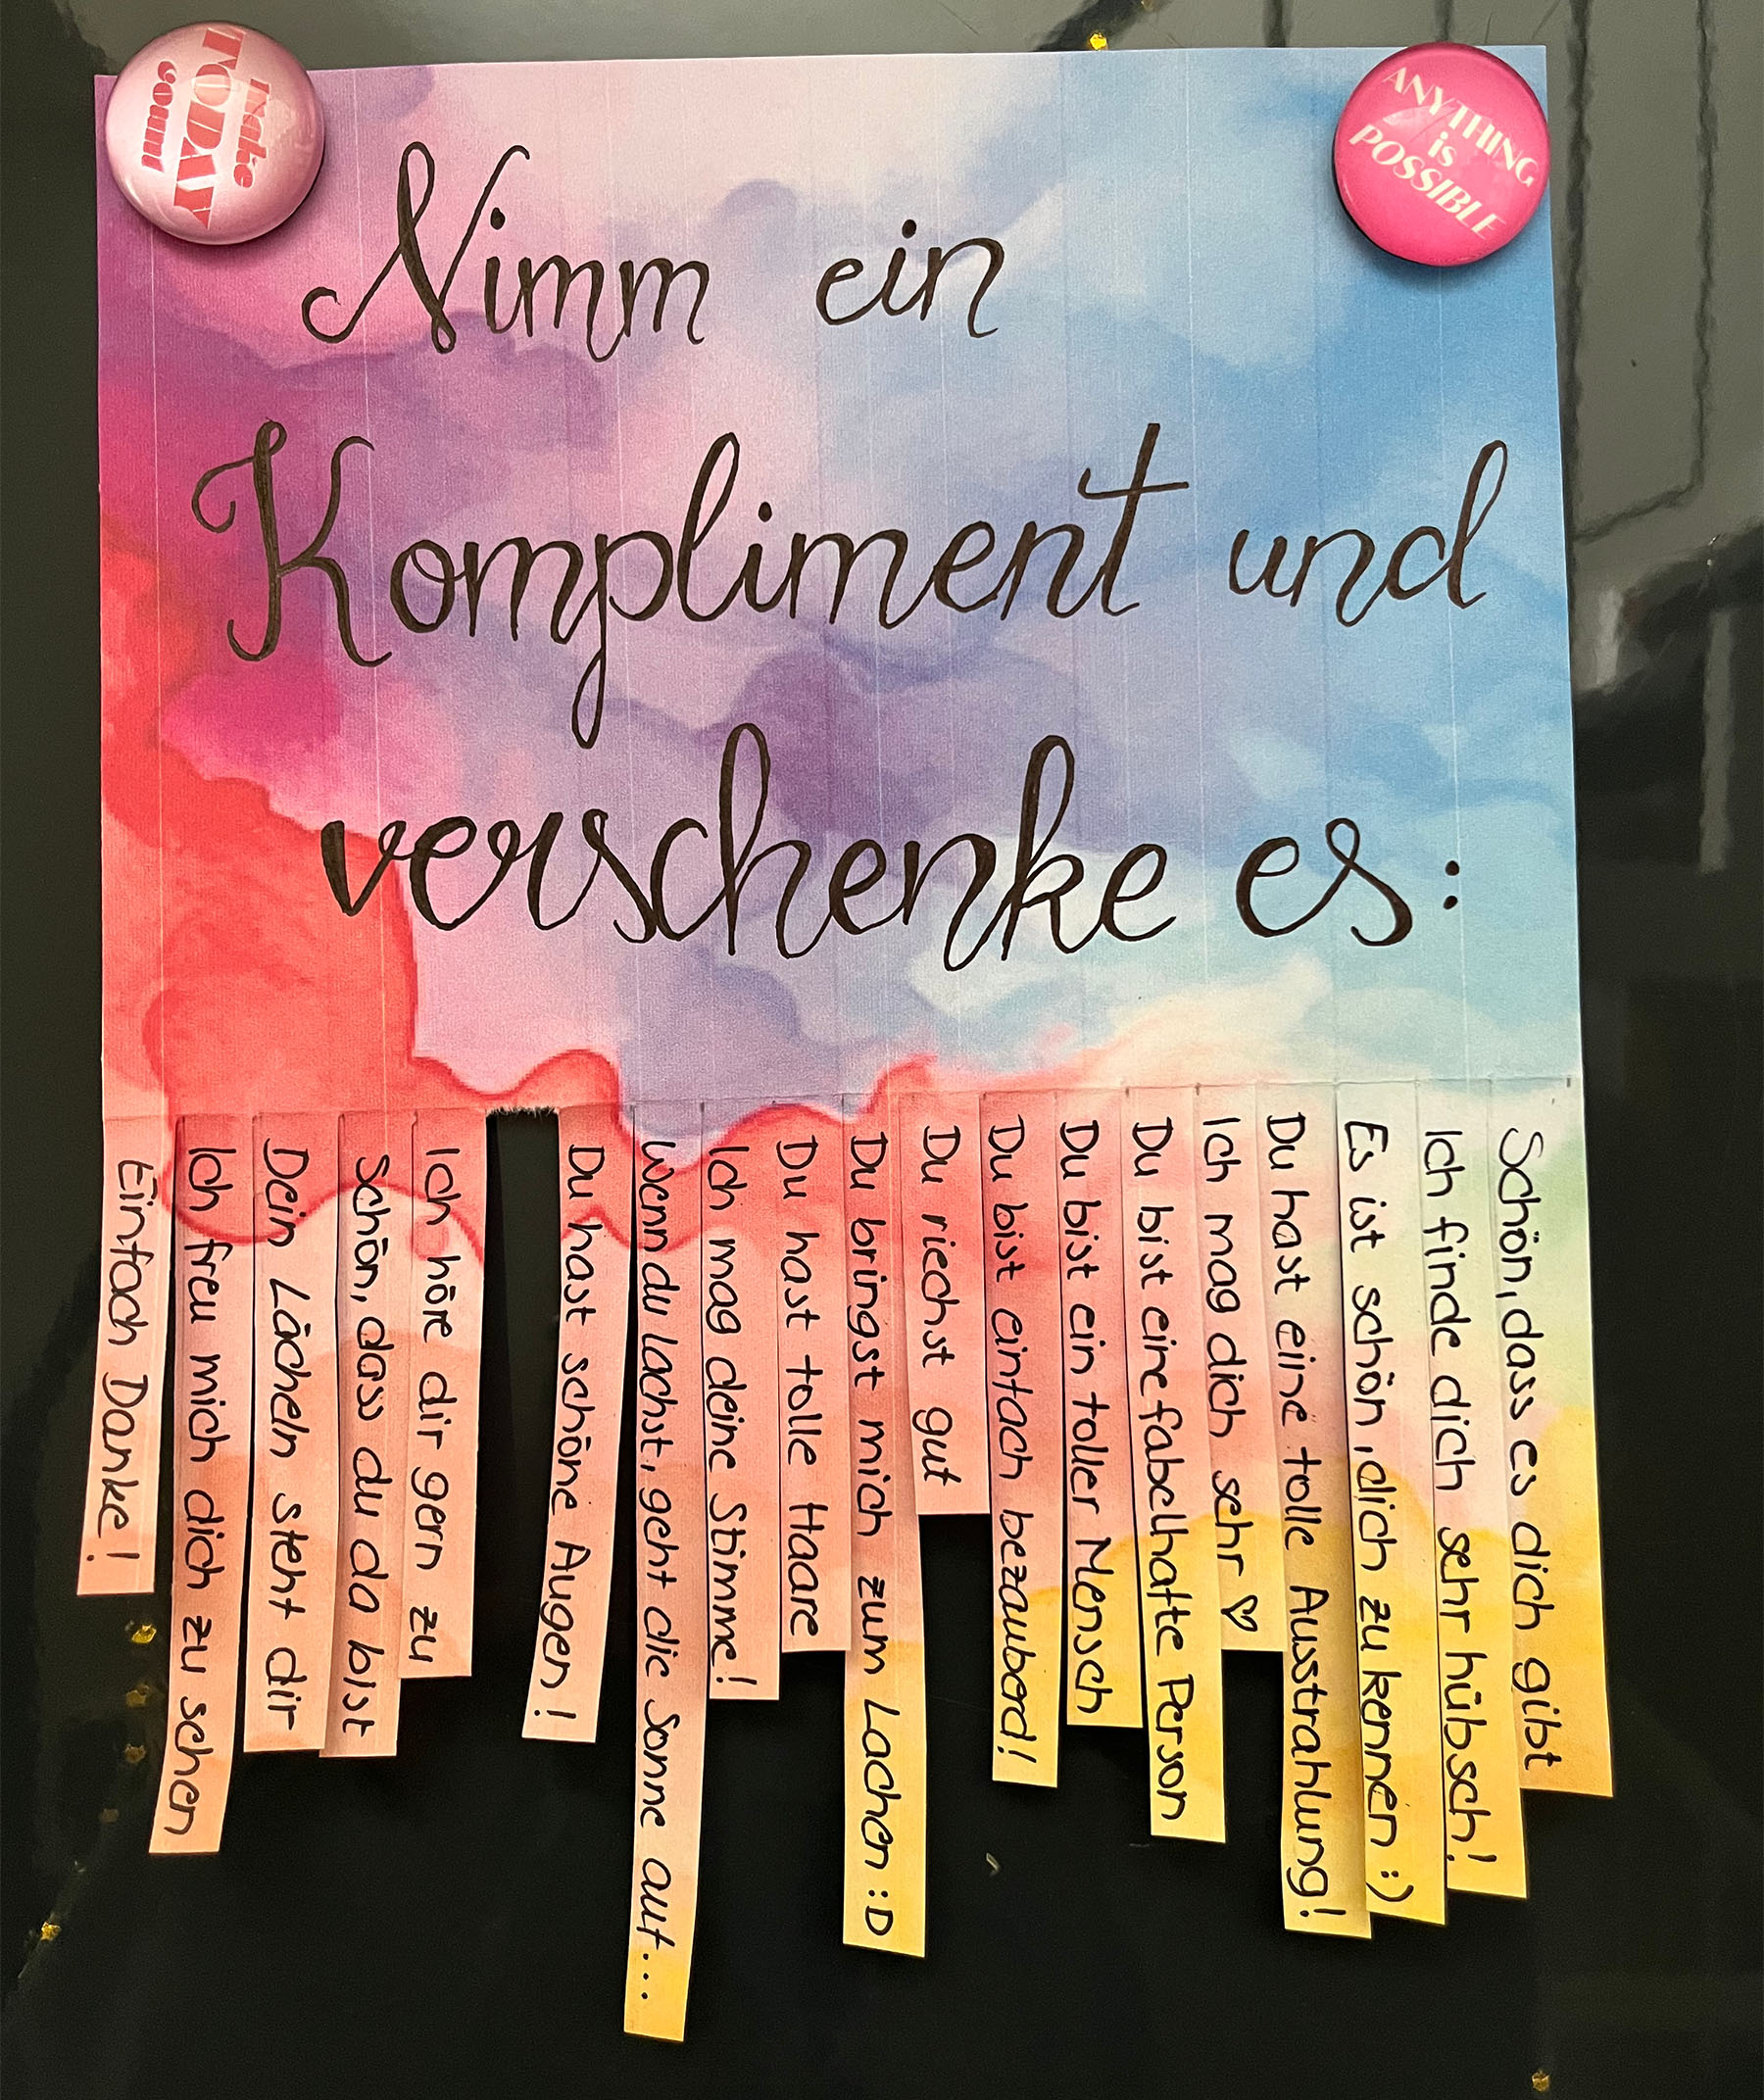 Make
TODAY
count
ANYTHING
is
POSSIBLE
Nimm ein
Kompliment und
verschenke es:
Einfach Danke!
Ich freu mich dich zu sehen
Dein Lächeln steht dir
Schön, dass du da bist
Ich höre dir gern zu
Du hast schöne Augen!
Wenn du lachst, geht die Sonne auf...
Ich mag deine Stimme!
Du hast tolle Haare
Du bringst mich zum Lachen :D
Du riechst gut
Du bist einfach bezaubernd!
Du bist ein toller Mensch
Du bist eine fabelhafte Person
Ich mag dich sehr ♡
Du hast eine tolle Ausstrahlung!
Es ist schön, dich zu kennen :)
Ich finde dich sehr hübsch!
Schön, dass es dich gibt